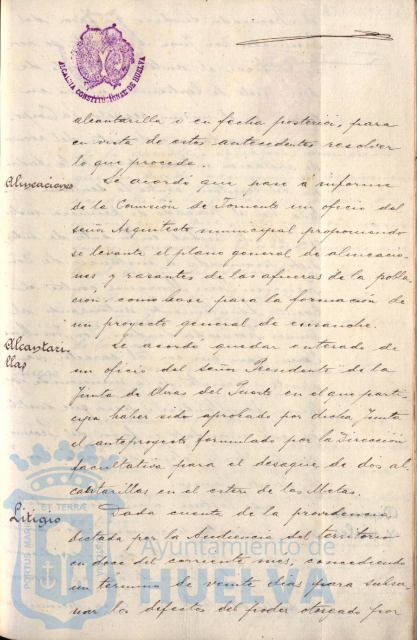 ALCALDIA CONSTITUCIONAL DE HUELVA
alcantarilla ó en fecha posterior, para
en vista de estos antecedentes resolver
lo que proceda.
Alineaciones
Se acordó que pase á informe
de la Comisión de Fomento un oficio del
señor Arquitecto municipal proponiendo
se levante el plano general de alineacio-
nes y rasantes de las afueras de la pobla-
ción como base para la formación de
un proyecto general de ensanche.
Alcantari-
llas
Se acordó quedar enterado de
un oficio del Señor Presidente de la
Junta de Obras del Puerto en el que parti-
cipa haber sido aprobado por dicha Junta
el anteproyecto formulado por la Dirección
facultativa para el desagüe de dos al-
cantarillas en el estero de las Metas.
Litigio
Dada cuenta de la providencia
dictada por la Audiencia del territorio
en doce del corriente mes, concediendo
un término de veinte días para subsa-
nar los defectos del poder otorgado por
PORTUS MARIS ET TERRAE
Ayuntamiento de
HUELVA